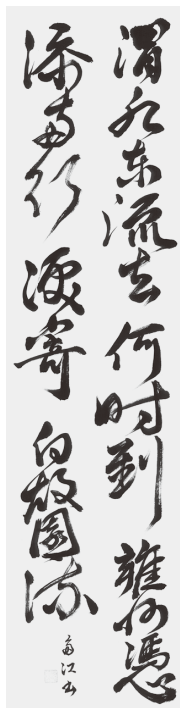 渭水東流去何時到雍州憑
添兩行淚寄向故園流
江書